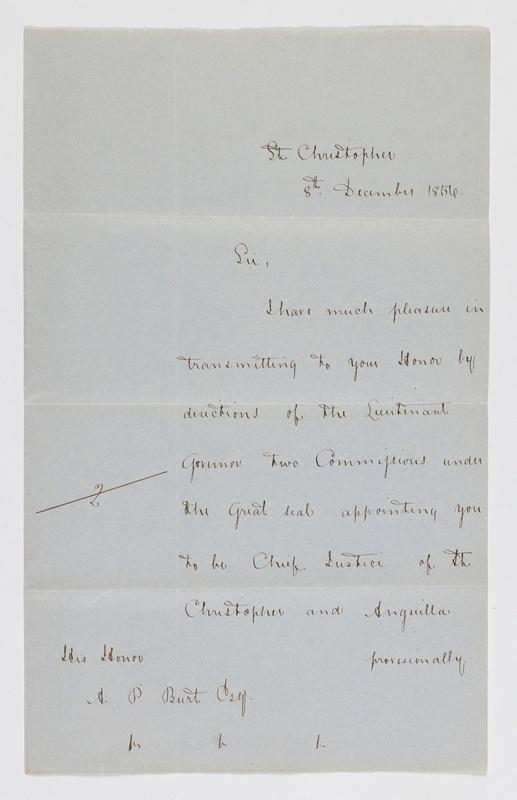 St. Christopher
8th December 1856.
Sir,
I have much pleasure in
transmitting to your Honor by
directions of the Lieutenant
Governor two Commissions under
the Great seal appointing you
to be Chief Justice of St.
Christopher and Anguilla
provisionally
2
His Honor
A. P. Burt Esq.